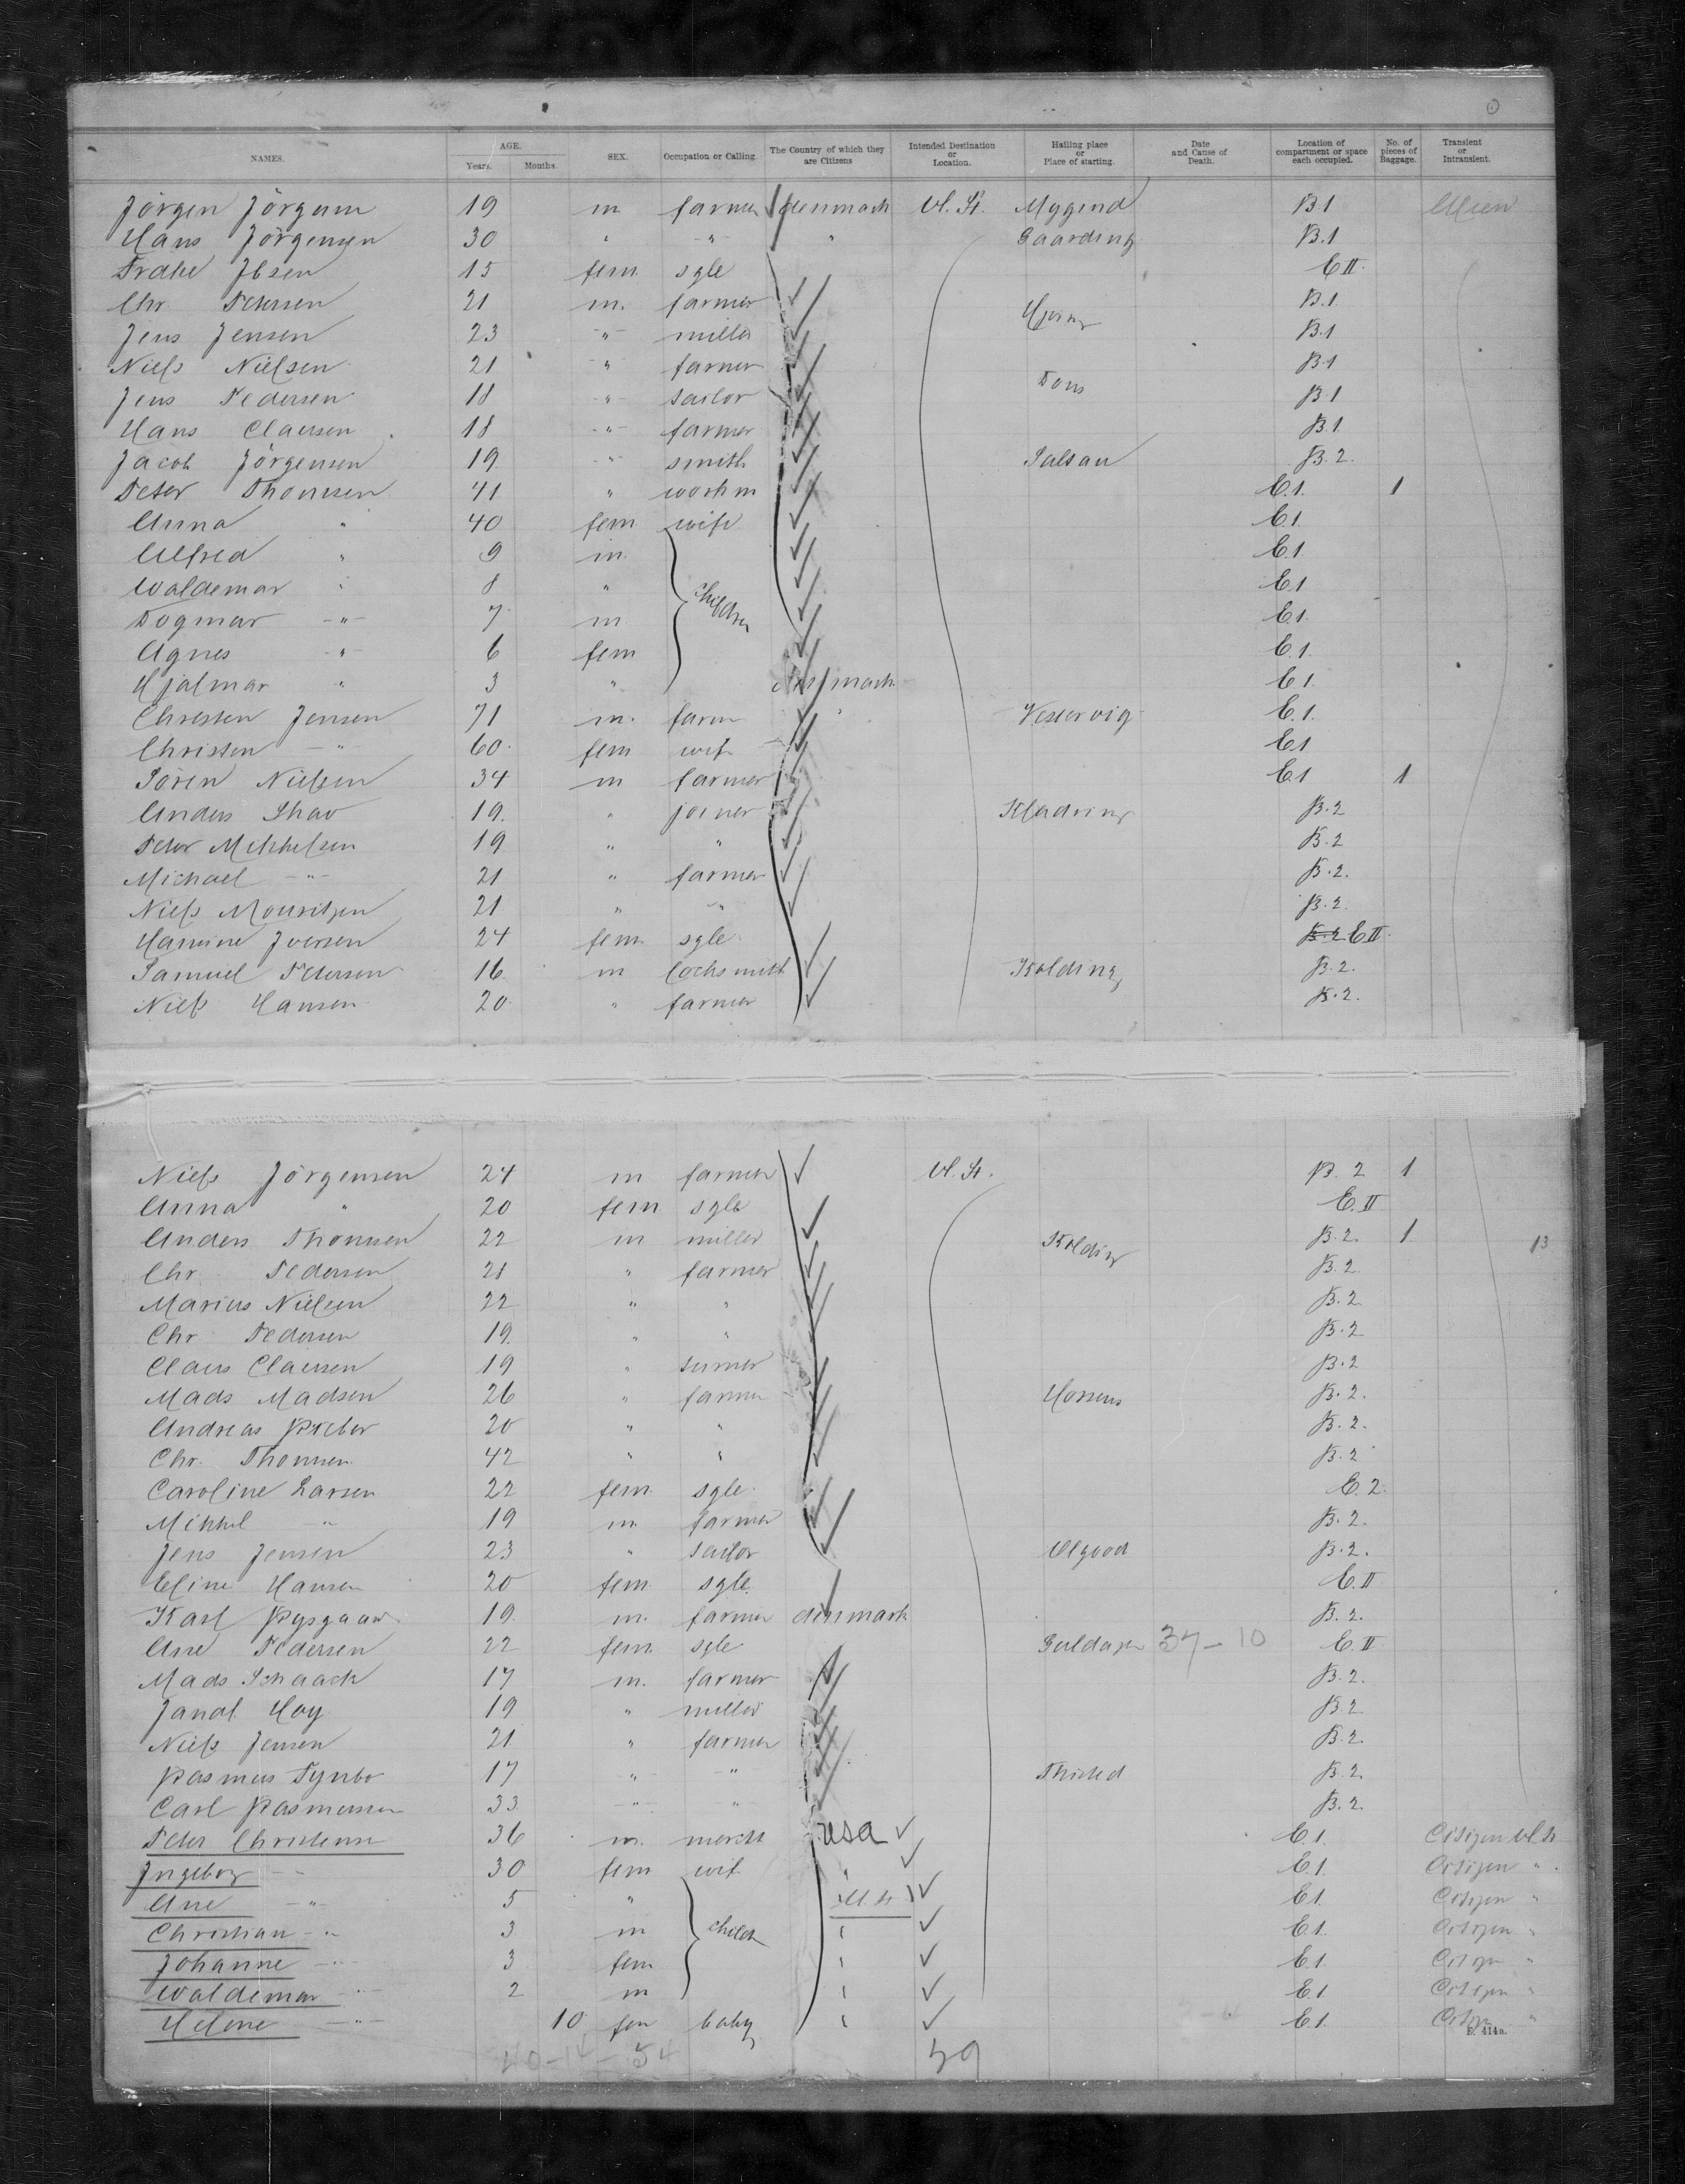 NAMES. AGE. Years. Months. SEX. Occupation or Calling. The Country of which they are Citizens Intended Destination or Location. Hailing place or Place of starting. Date and Cause of Death. Location of compartment or space each occupied. No. of pieces of Baggage. Transient or Intransient.
Jörgen Jörgensen 19 m farmer denmark U. St. Mygend B.1 Alien
Hans Jörgensen 30 " " " Gaarding B.1
Ibsen 15 fem sgle E II.
Chr. Petersen 21 m. farmer B.1
Jens Jensen 23 " miller B.1
Niels Nielsen 21 " farmer B.1
Jens Pedersen 18 " sailor B.1
Hans Clausen 18 " farmer B.1
Jacob Jörgensen 19 " smith B.2.
Peter Thomsen 41 " workm E.1. 1
Anna " 40 fem wife E.1.
Alfred " 9 m. E.1.
Waldemar " 8 " children E.1
Dogmar " 7 m E.1.
Agnes " 6 fem E.1.
Hjalmar " 3 " denmark E.1.
Christen Jensen 71 m. farm " Vestervig E.1.
Christen " 60. fem wif E.1
Sören Nielsen 34 m farmer E.1 1
Anders 19. " joiner B.2
Peter Mikkelsen 19 " " B.2
Michael " 21 " farmer B.2.
Niels Mouritzen 21 " " B.2.
Iversen 24 fem sgle B.2 E II.
Samuel Petersen 16. m locksmith Kolding B.2.
Niels Hansen 20. " farmer B.2.
Niels Jörgensen 24 m farmer U. St. B.2 1
Anna " 20 fem sgle E.II
Anders Thomsen 22 m miller Kolding B.2. 1 13
Chr. Pedersen 21 " farmer B.2
Marius Nielsen 22 " " B.2
Chr Pedersen 19. " " B.2
Claus Clausen 19 " B.2
Mads Madsen 26 " farmer Horsens B.2.
Andreas 20 " " B.2.
Chr. Thomsen 42 " " B.2
Caroline Larsen 22 fem sgle E.2.
Mikkel " 19 m. farmer B.2.
Jens Jensen 23 " sailor B.2.
Eline Hansen 20 fem sgle. E.II
Karl 19. m. farmer denmark B.2.
Ane Pedersen 22 fem sgle 37-10 E.II
Mads Schaack 17 m. farmer B.2.
Hoy 19 " miller B.2
Niels Jensen 21 " farmer B.2.
Rasmus 17 " " Thisted B.2.
Carl Rasmussen 33. " " B.2.
Peter Christensen 36 m. mercht usa E.1. Citizen U. St
Ingeborg " 30 fem wif " E.1. Citizen "
Ane " 5 " U. St E.1. Citizen "
Christian " 3 m childr " E.1. Citizen "
Johanne " 3 fem " E.1. Citizen "
Waldemar " 2 m " E.1 Citizen "
Helene " 10 fem baby " E.1. Citizen "
E. 414a.
40-14-54 59